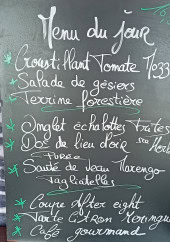 Menu du jour
Croustillant Tomate Mozza
Salade de gésiers
Terrine forestière
Onglet échalottes Frites
Dos de lieu d'oie
Purée
Sauté de Veau Marengo
Tagliatelles
Coupe After eight
Tarte Citron Meringuée
Café gourmand